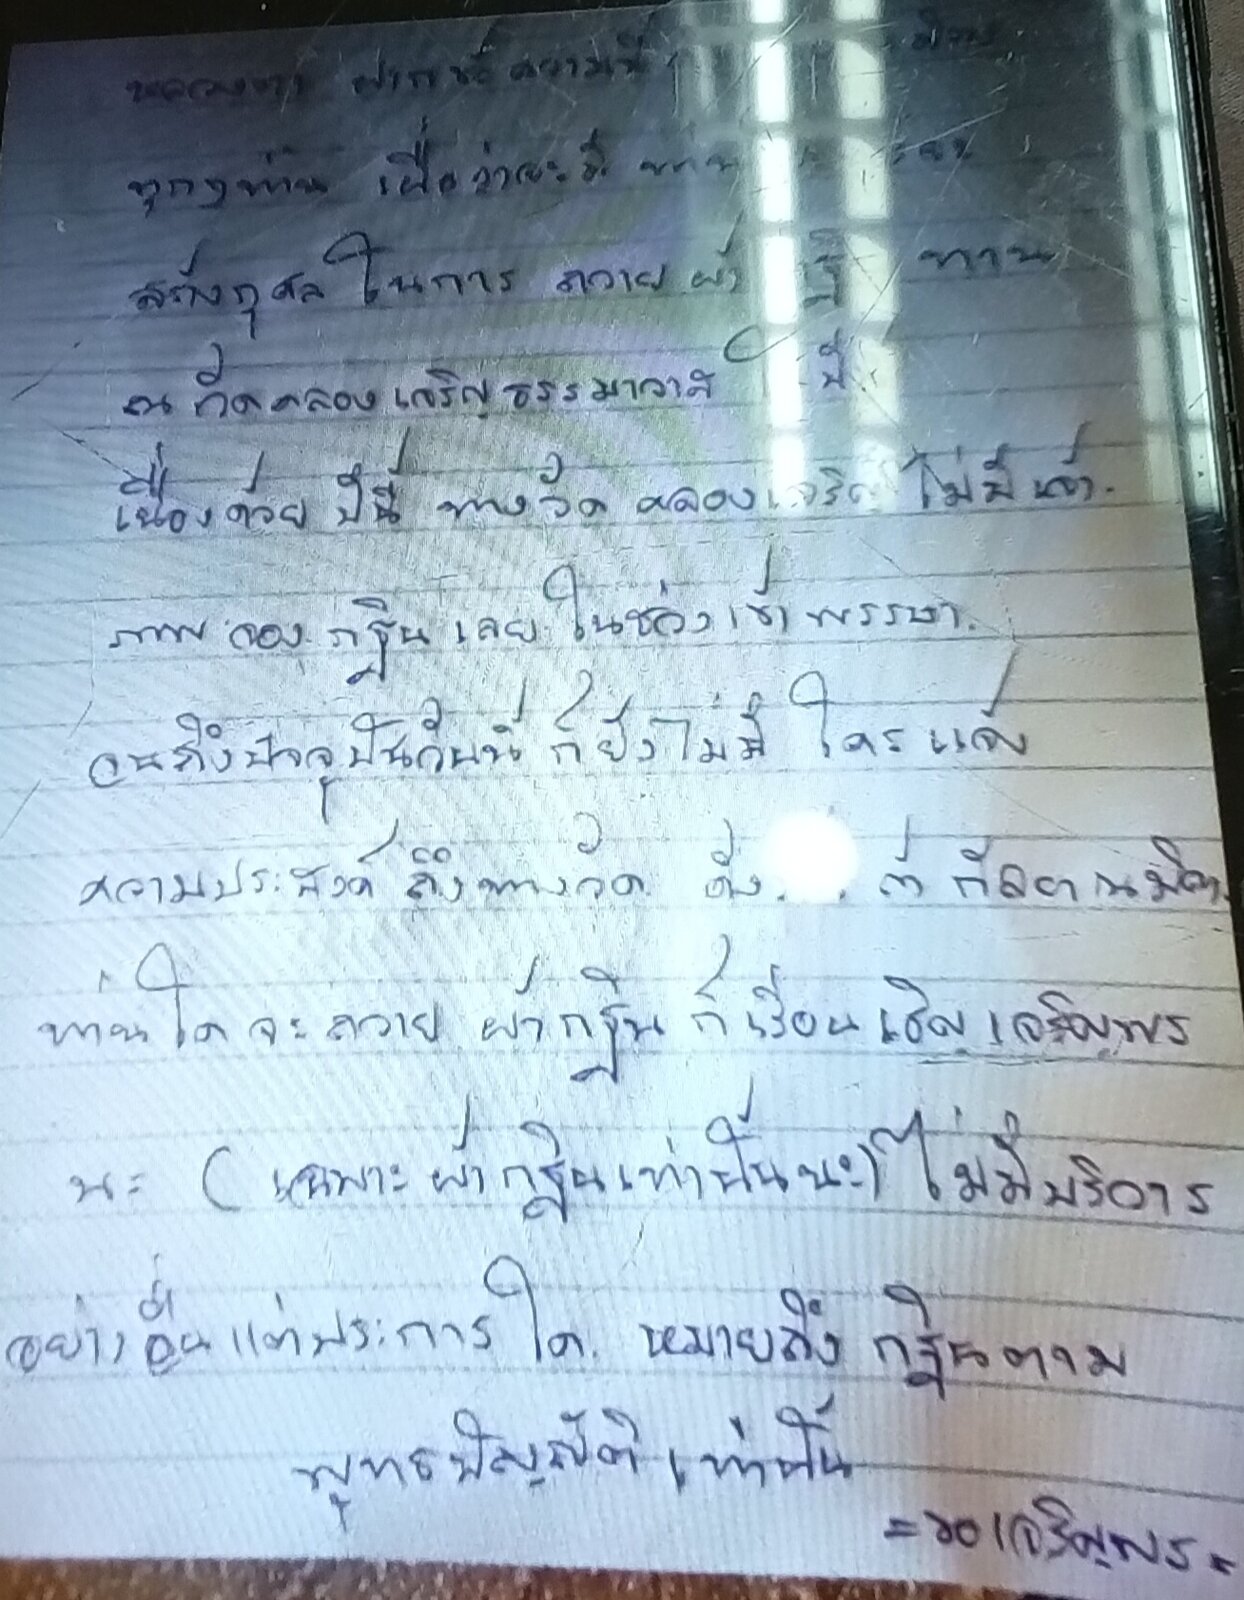 หลวงตา ฝากข้อความนี้
ทุกๆท่าน เผื่อว่าจะมี
สร้างกุศล ในการ ถวาย ผ้า กฐิน ทาน
ณ วัดคลองเจริญธรรมาวาส ปี
เนื่องด้วย ปีนี้ ทางวัด คลองเจริญ ไม่มีเจ้า
ภาพ จอง กฐิน เลย ในช่วง เข้า พรรษา
จนถึงปัจจุบันวันนี้ ก็ ยัง ไม่มี ใคร แจ้ง
ความประสงค์ ถึงทางวัด กัลยาณมิตร
ท่านใด จะ ถวาย ผ้ากฐิน ก็เรียนเชิญ เจริญพร
นะ (เฉพาะ ผ้ากฐินเท่านั้นนะ) ไม่มีบริวาร
อย่างอื่นแต่ประการ ใด หมายถึง กฐินตาม
พุทธบัญญัติ เท่านั้น
=ขอเจริญพร=